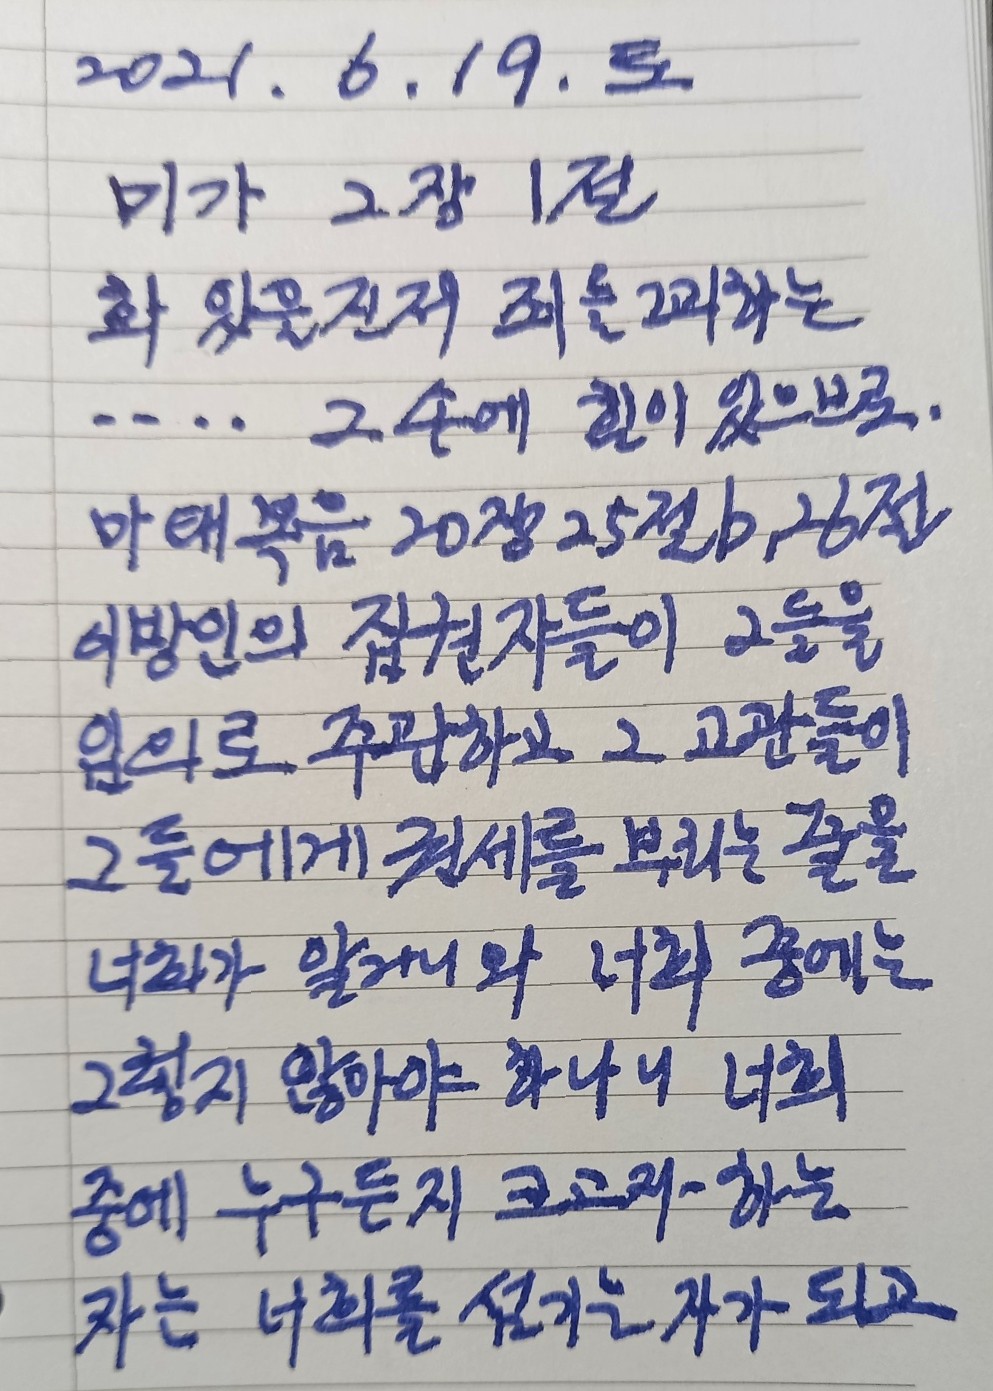 2021. 6. 19. 토
미가 2장 1절
화 있을진저 죄를 꾀하는
.... 그 손에 힘이 있으므로.
마태복음 20장 25절b, 26절
이방인의 집권자들이 그들을
임의로 주관하고 그 고관들이
그들에게 권세를 부리는 줄을
너희가 알거니와 너희 중에는
그렇지 않아야 하나니 너희
중에 누구든지 크고자 하는
자는 너희를 섬기는 자가 되고